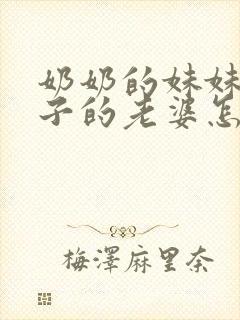 奶奶的妹妹
子的老婆怎
梅澤麻里奈